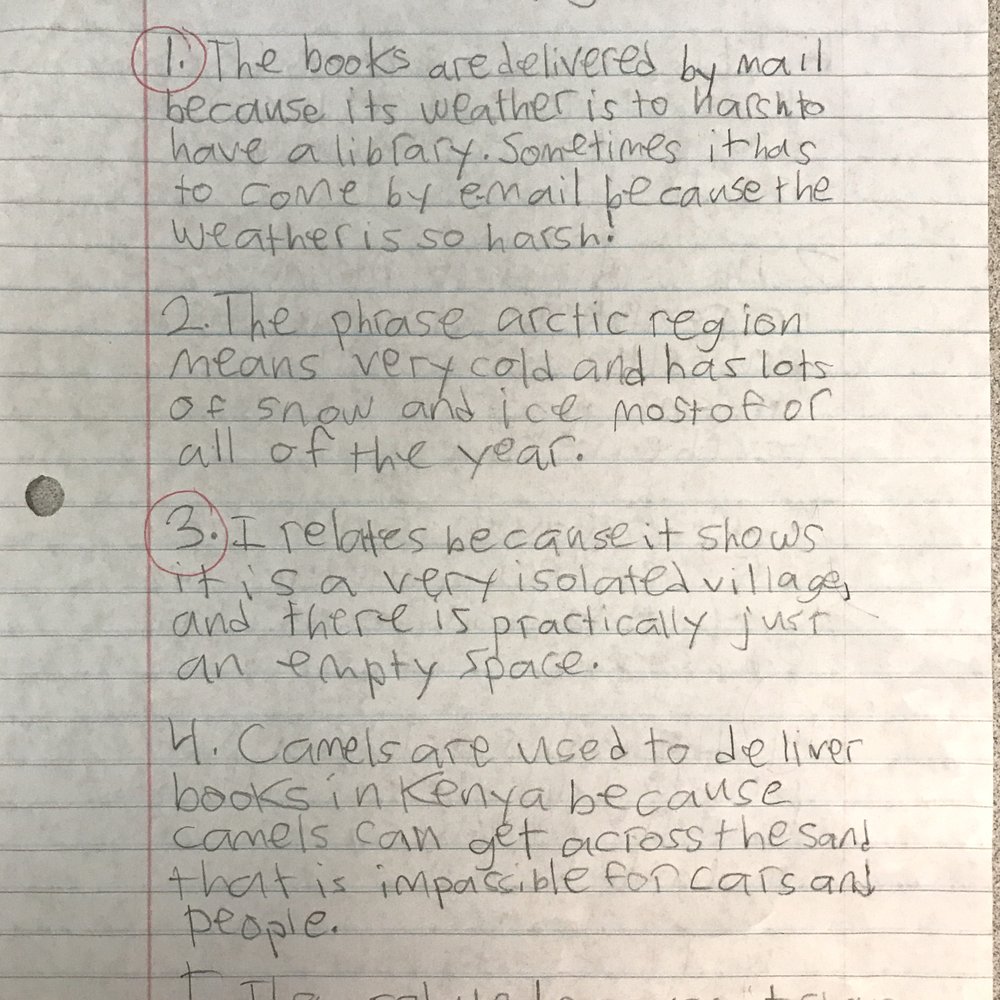 1. The books are delivered by mail
because its weather is to harsh to
have a library. Sometimes it has
to come by email because the
weather is so harsh!
2. The phrase arctic region
means very cold and has lots
of snow and ice most of or
all of the year.
3. I relates because it shows
it is a very isolated village,
and there is practically just
an empty space.
4. Camels are used to deliver
books in Kenya because
camels can get across the sand
that is impassible for cars and
people.